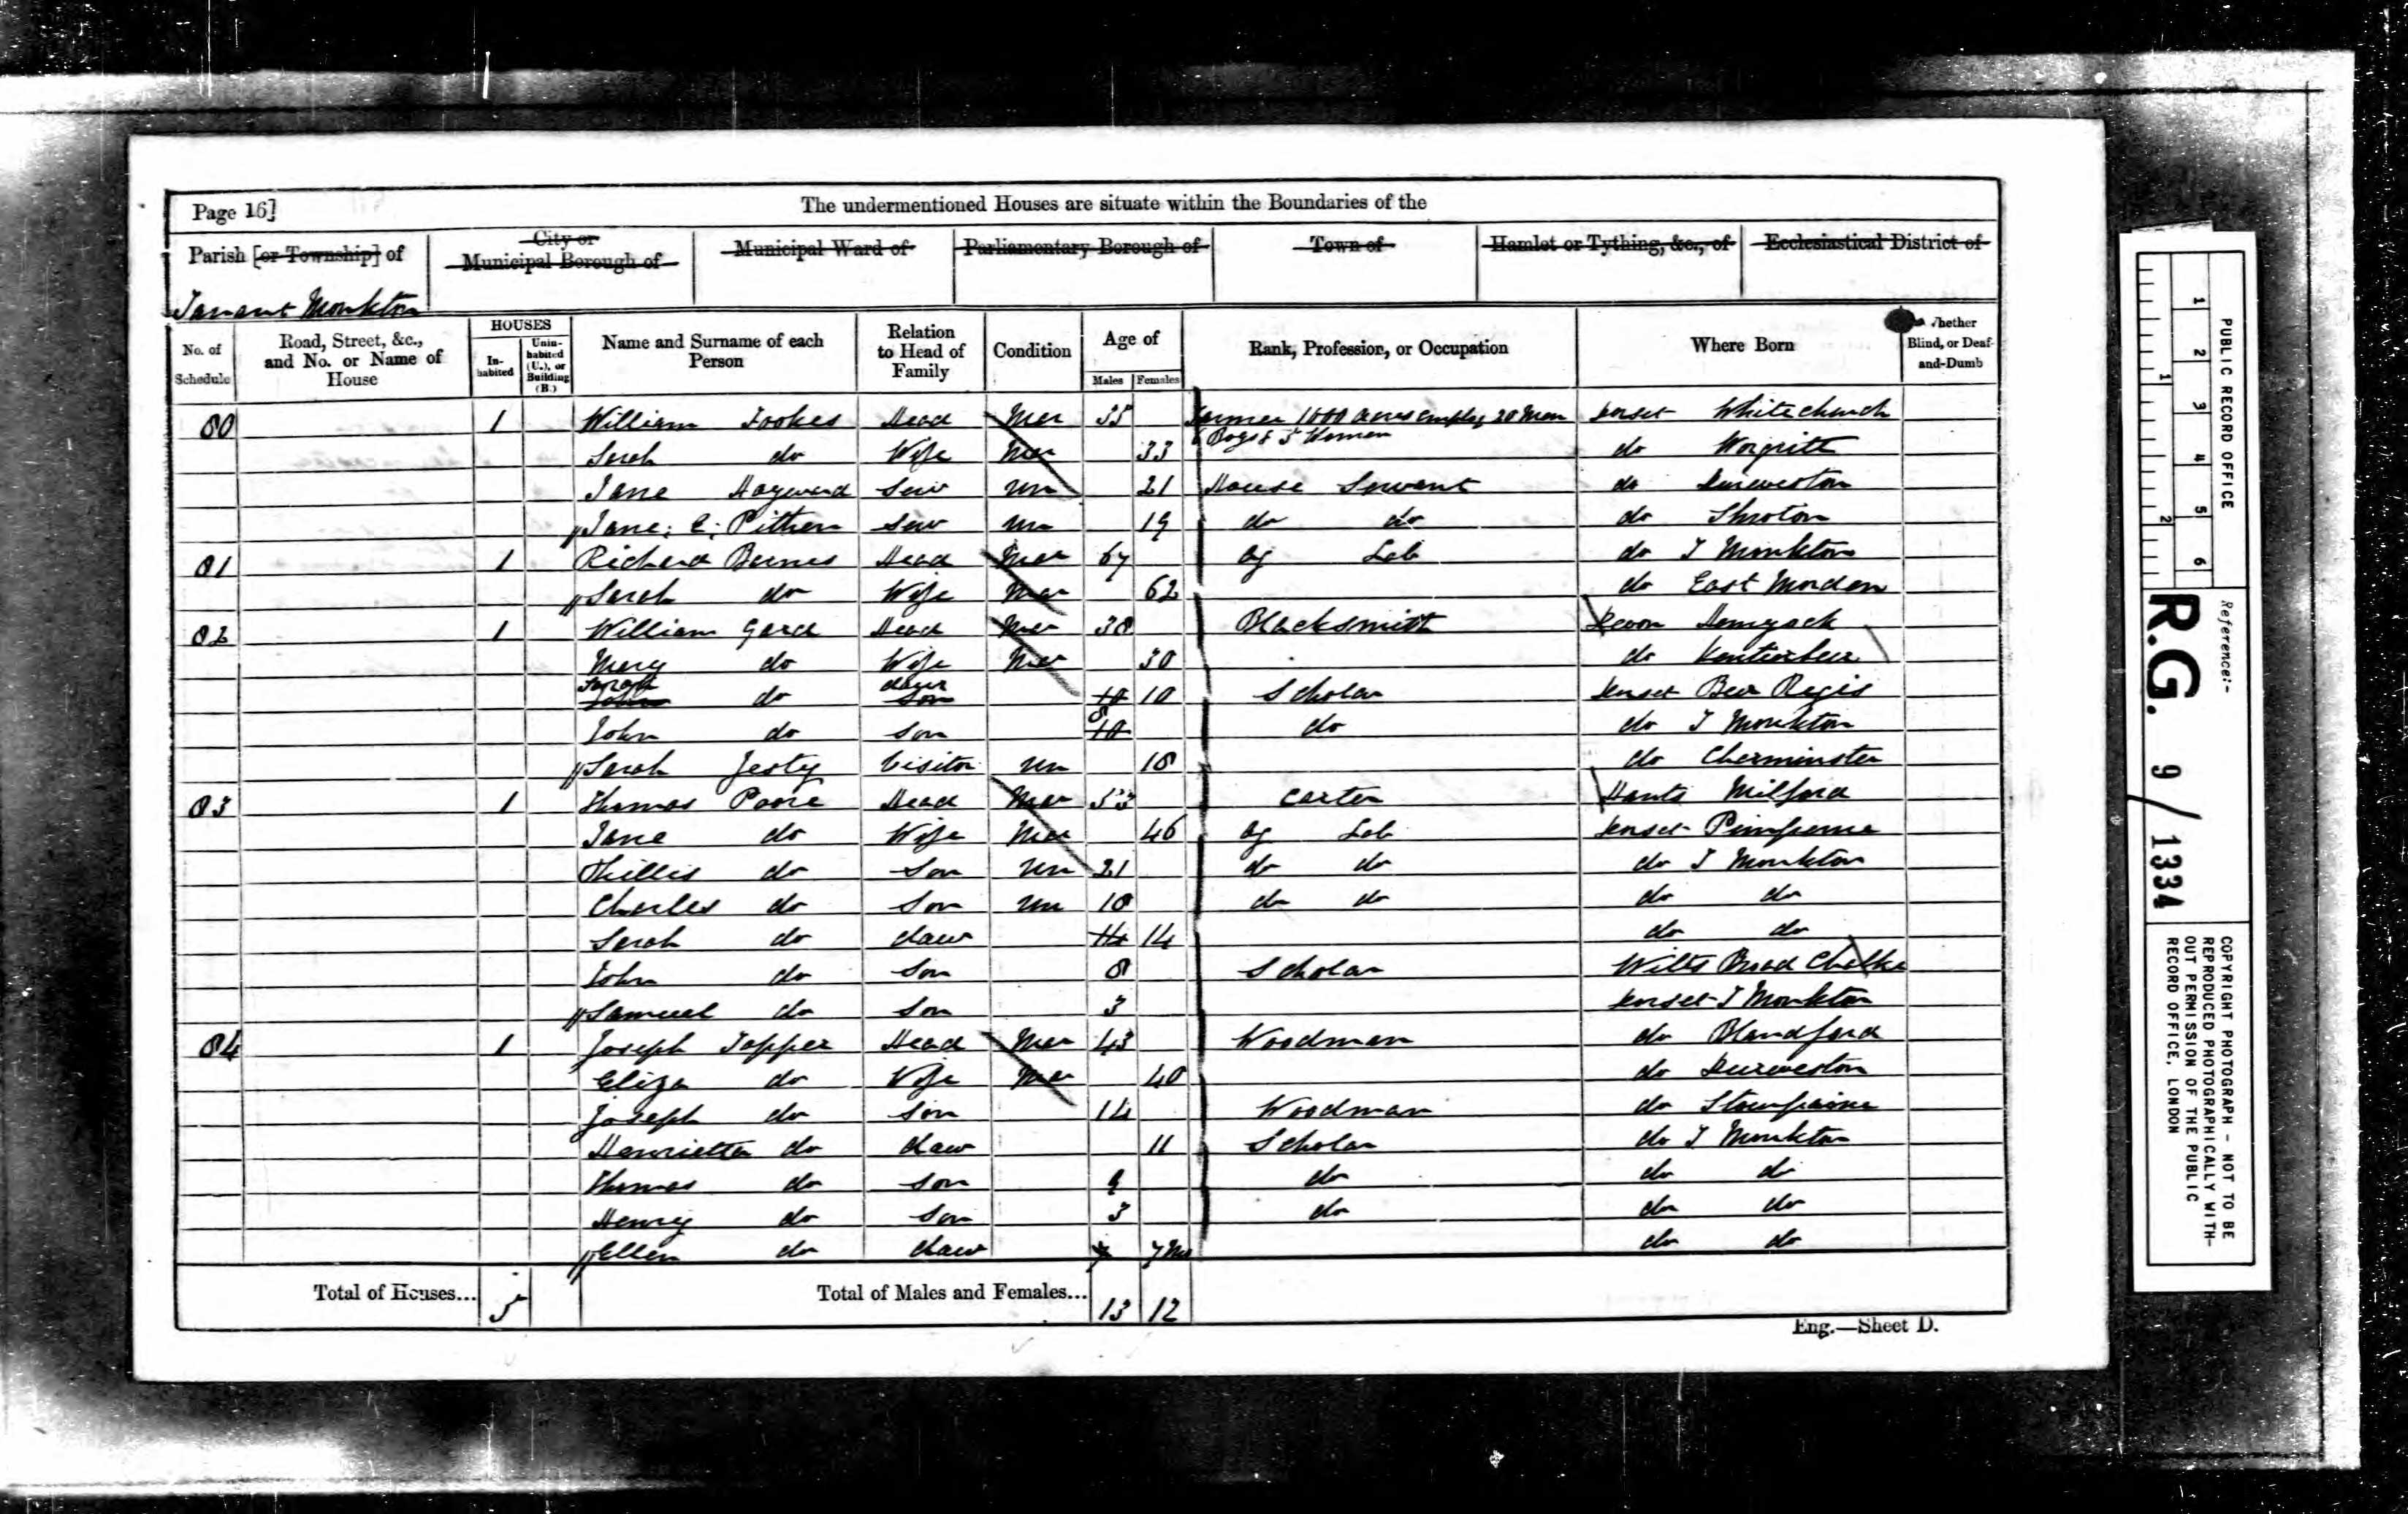 Page 16]
The undermentioned Houses are situate within the Boundaries of the
Parish [or Township] of
City or Municipal Borough of
Municipal Ward of
Parliamentary Borough of
Town of
Hamlet or Tything, &c., of
Ecclesiastical District of
Tarrant Monkton
No. of Schedule
Road, Street, &c., and No. or Name of House
HOUSES
In-habited
Unin-habited (U.), or Building (B.)
Name and Surname of each Person
Relation to Head of Family
Condition
Age of
Males
Females
Rank, Profession, or Occupation
Where Born
Whether Blind, or Deaf-and-Dumb
80 1 William Fookes Head Mar 35 Farmer 1000 acres employ 20 Men Dorset Whitechurch
6 Boys & 5 Women
Sarah do Wife Mar 33 do Worgritt
Jane Hayward Serv Un 21 House Servant do Durweston
Jane. E. Pithen Serv Un 19 do do do Shroton
81 1 Richard Barnes Head Mar 67 Ag Lab do T Monkton
Sarah do Wife Mar 62 do East Morden
82 1 William Gard Head Mar 38 Blacksmith Devon Hemyock
Mary do Wife Mar 30 do Kentisbeer
Sarah John do daur Son 10 10 Scholar Dorset Bere Regis
John do Son 8 10 do do T Monkton
Sarah Jesty Visitor Un 18 do Charminster
83 1 Thomas Poore Head Mar 53 Carter Hants Milford
Jane do Wife Mar 46 Ag Lab Dorset Pimperne
Thillis do Son Un 21 do do do T Monkton
Charles do Son Un 18 do do do do
Sarah do daur 14 14 do do
John do Son 8 Scholar Wilts Broad Chalke
Samuel do Son 3 Dorset T Monkton
84 1 Joseph Topper Head Mar 43 Woodman do Blandford
Eliza do Wife Mar 40 do Durweston
Joseph do Son 14 Woodman do Stourpaine
Henrietta do daur 11 Scholar do T Monkton
Thomas do Son 9 do do do
Henry do Son 3 do do do
Ellen do daur 7 7 Mo do do
Total of Houses... 5
Total of Males and Females... 13 12
Eng.—Sheet D.
1 2 3 4 5 6
1 2
PUBLIC RECORD OFFICE
Reference:-
R.G. 9/1334
COPYRIGHT PHOTOGRAPH - NOT TO BE
REPRODUCED PHOTOGRAPHICALLY WITH-
OUT PERMISSION OF THE PUBLIC
RECORD OFFICE, LONDON